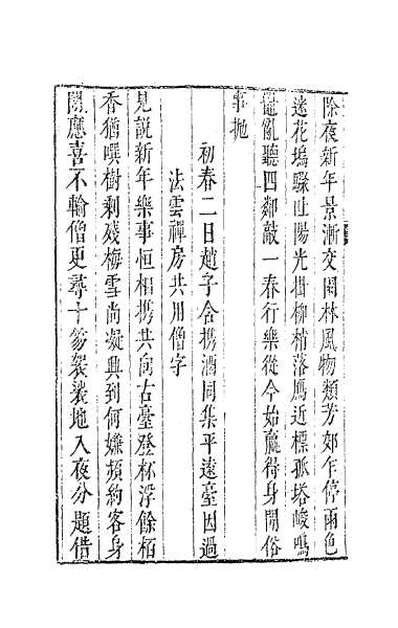 除夜新年景漸交園林風物類芳郊乍停雨色
迷花塢驟吐陽光掛柳梢落鴈近標孤塔峻鳴
鼉亂聽四鄰敲一春行樂從今始贏得身閒俗
事拋
初春二日趙子含携酒同集平遠臺因過
法雲禪房共用僧字
見說新年樂事恒相携共向古臺登杯浮餘栢
香猶噀樹剩殘梅雪尚凝興到何嫌頻約客身
閒應喜不輸僧更尋十笏袈裟地入夜分題借